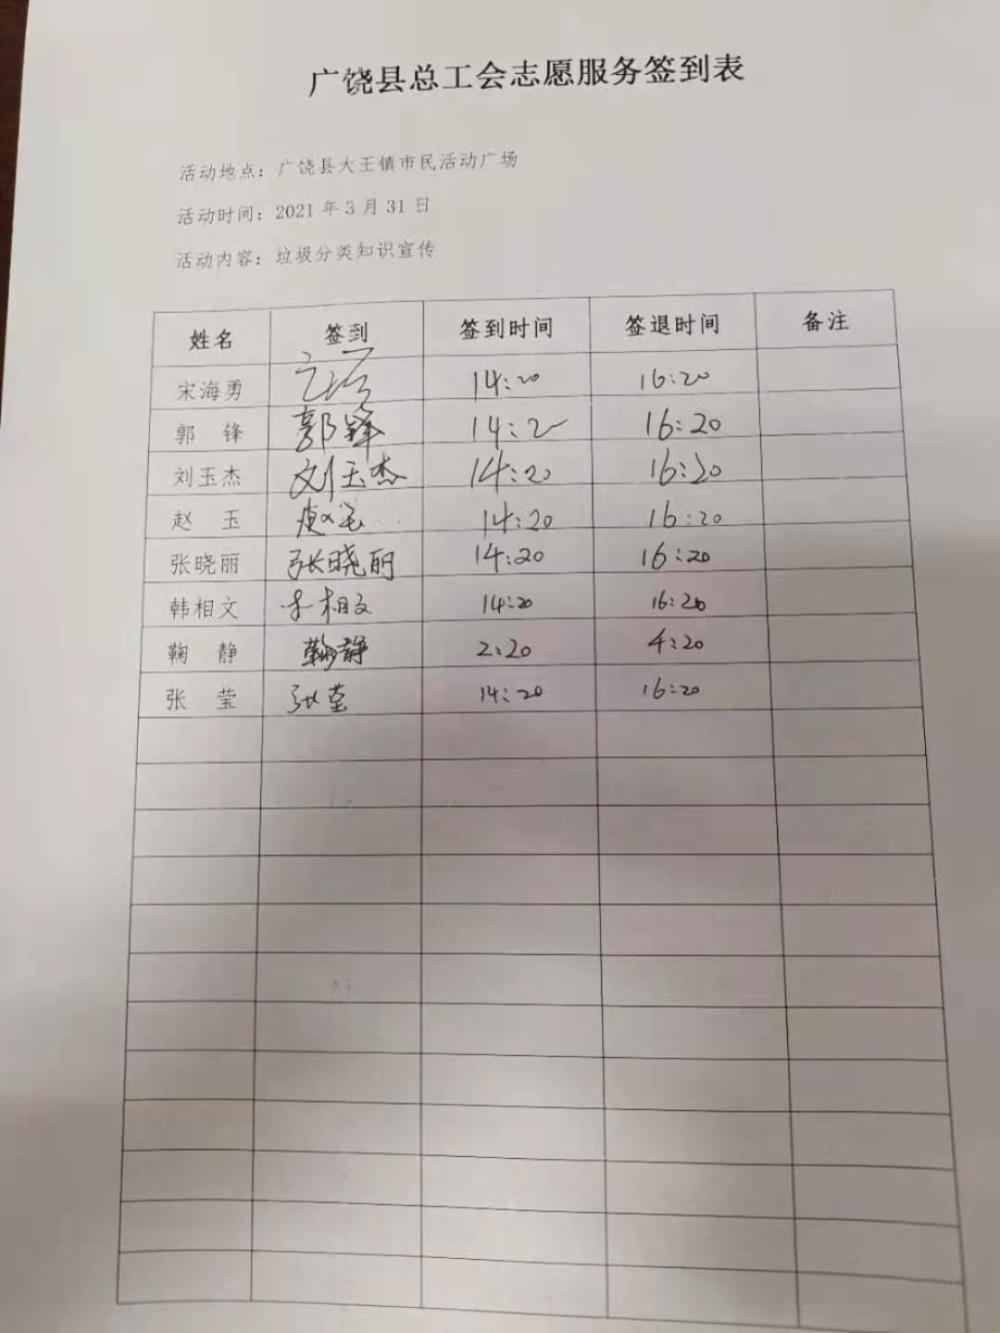 广饶县总工会志愿服务签到表
活动地点：广饶县大王镇市民活动广场
活动时间：2021年3月31日
活动内容：垃圾分类知识宣传
姓名 签到 签到时间 签退时间 备注
宋海勇 14:20 16:20
郭锋 郭锋 14:2 16:20
刘玉杰 刘玉杰 14:20 16:20
赵玉 赵玉 14:20 16:20
张晓丽 张晓丽 14:20 16:20
韩相文 相文 14:20 16:20
鞠静 鞠静 2:20 4:20
张莹 张莹 14:20 16:20